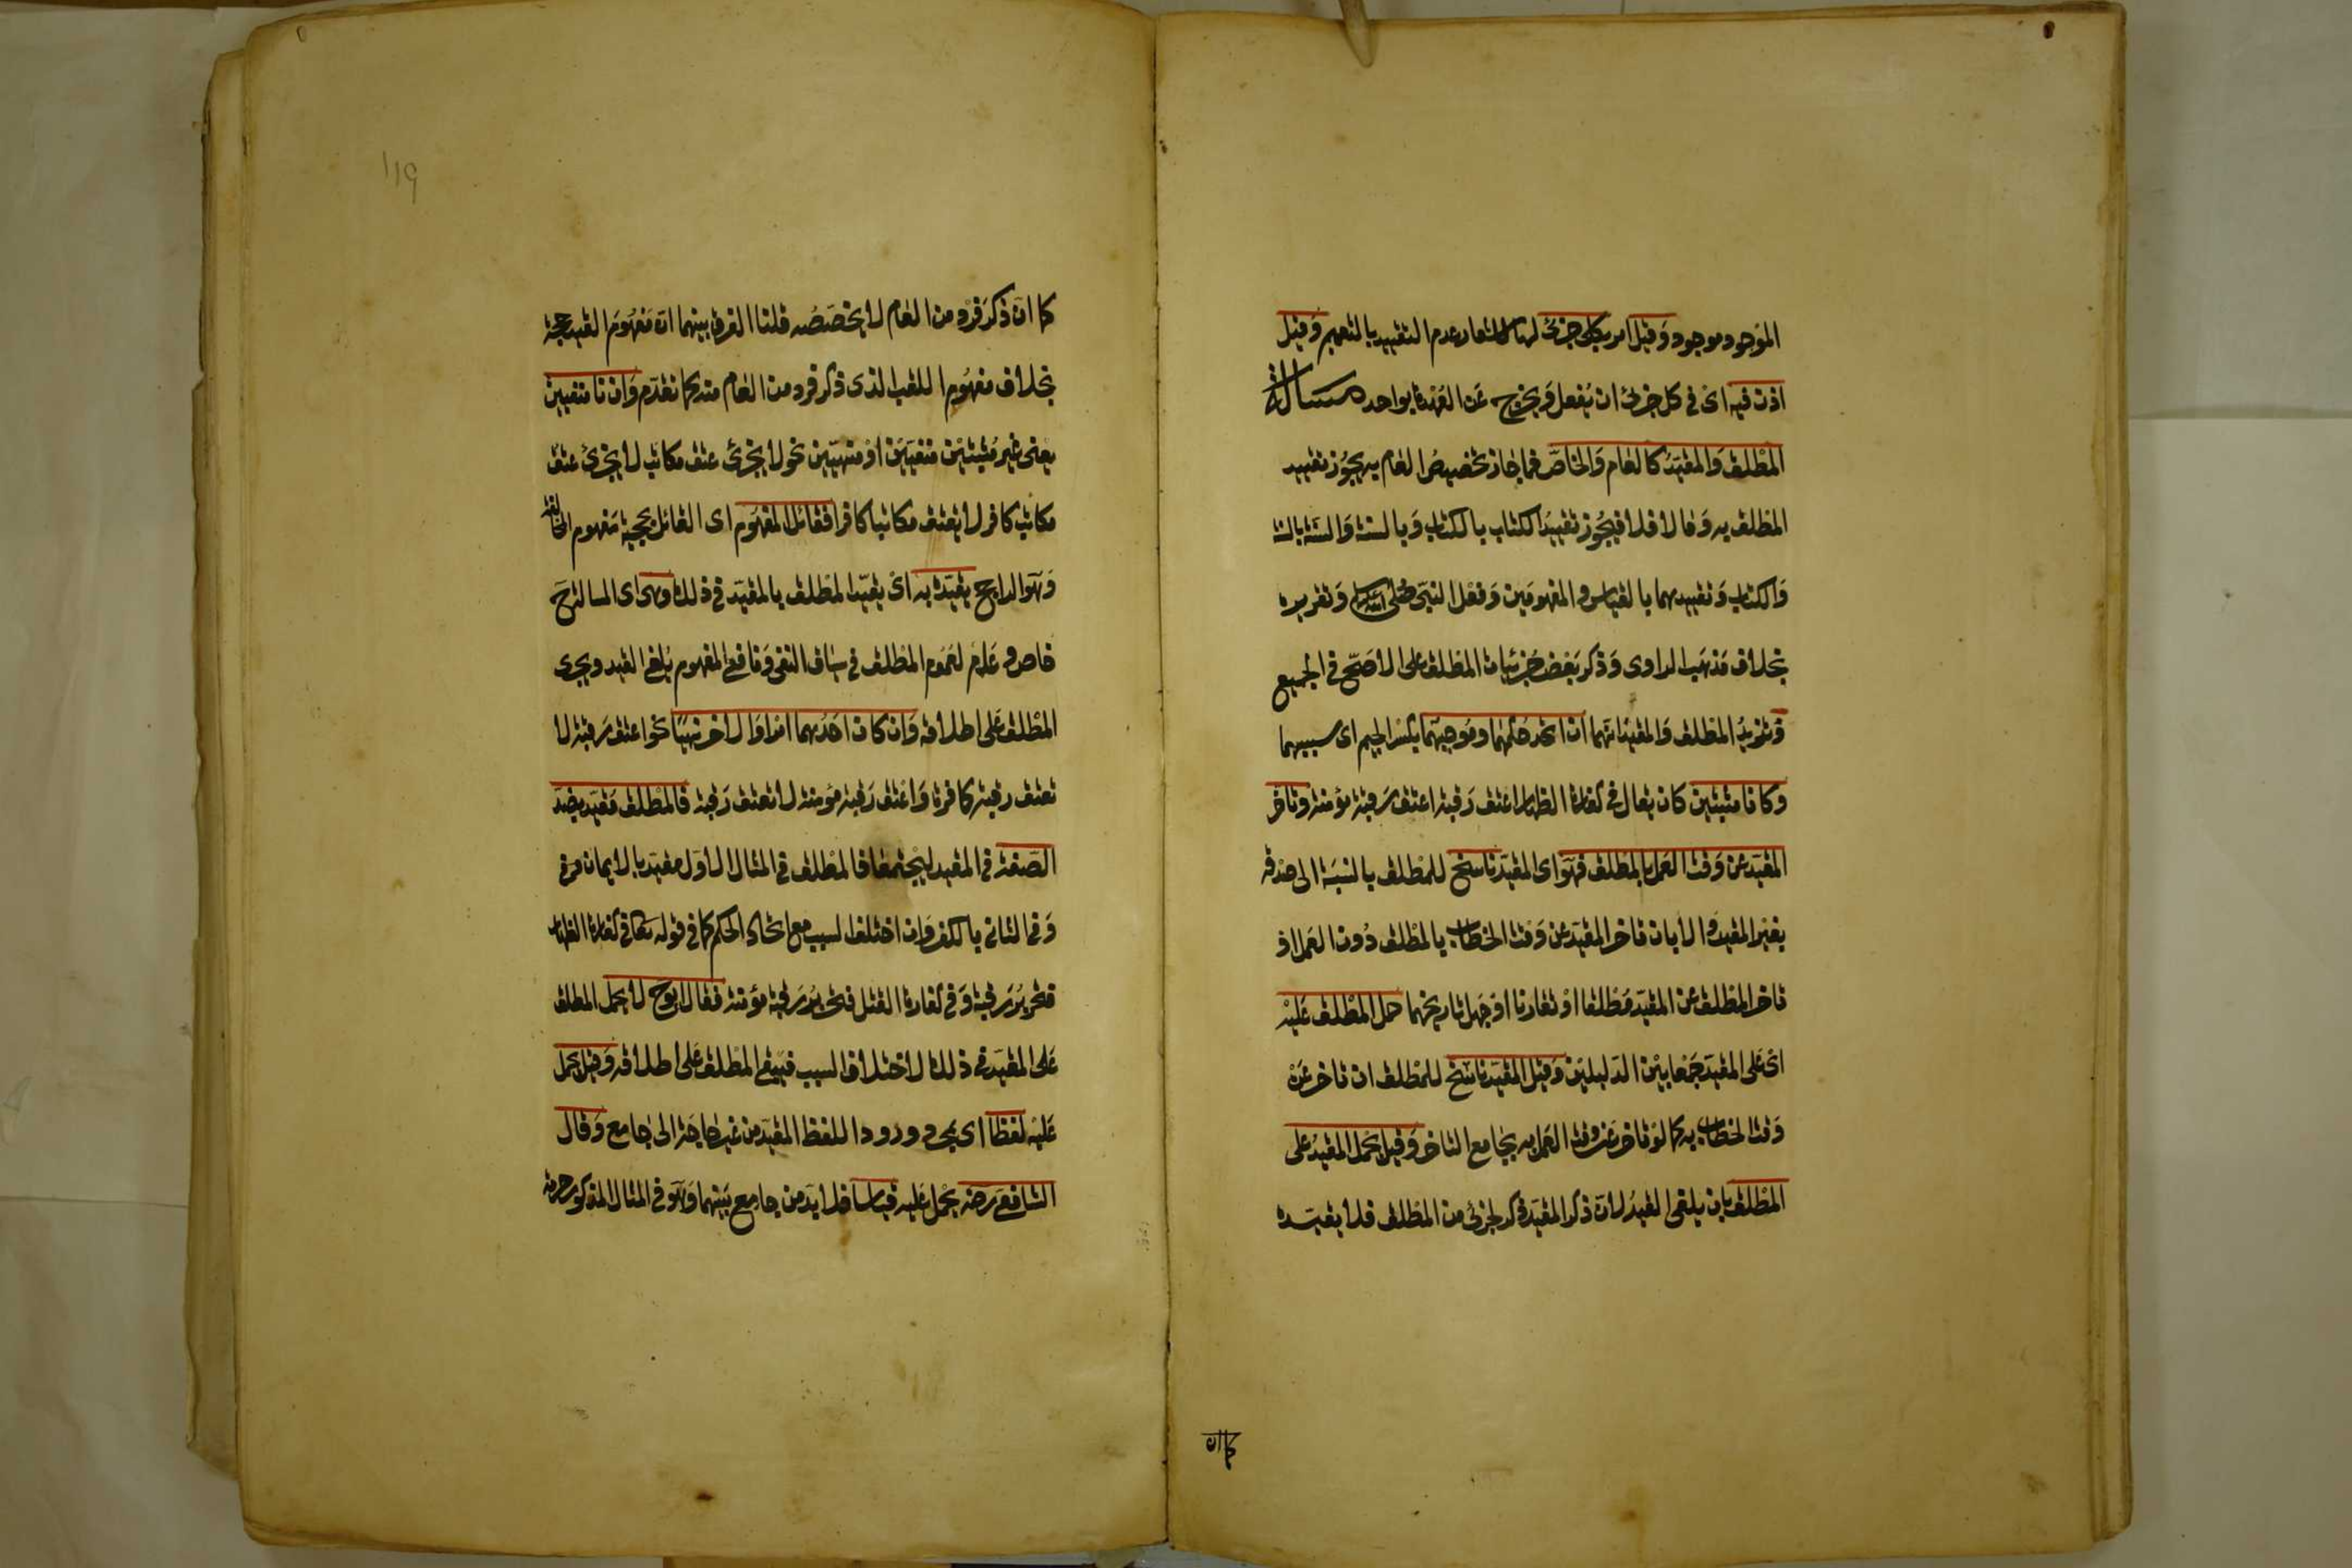 الموجود موجود وقيل امر بكل جزئى لها لاشعار عدم التقييد بالتعميم وقيل
اذن فيه اى فى كل جزئى ان يفعل ويخرج عن العهدة بواحد مسئالة
المطلق والمقيد كالعام والخاص فما جاز تخصيص العام به يجوز تقييد
المطلق به وما لا فلا فيجوز تقييد الكتاب بالكتاب وبالسنة والسنة بالسنة
والكتاب وتقييدهما بالقياس والمفهومين وفعل النبى صلى الله عليه وتقريره
بخلاف مذهب الراوى وذكر بعض جزئيات المطلق على الاصح فى الجميع
ويزيد المطلق والمقيد انهما ان اتحد حكمهما وموجبهما بكسر الجيم اى سببهما
وكانا مثبتين كان يقال فى كفارة الظهار اعتق رقبة اعتق رقبة مؤمنة وتاخر
المقيد عن وقت العمل بالمطلق فهو اى المقيد ناسخ للمطلق بالنسبة الى صدقه
بغير المقيد والا بان تاخر المقيد عن وقت الخطاب بالمطلق دون العمل او
تاخر المطلق عن المقيد مطلقا او تقارنا او جهل تاريخهما حمل المطلق عليه
اى على المقيد جمعا بين الدليلين وقيل المقيد ناسخ للمطلق ان تاخر عن
وقت الخطاب به كما لو تاخر عن وقت العمل به بجامع التاخر وقيل يحمل المقيد على
المطلق بان يلغى القيد لان ذكر المقيد ذكر لجزئى من المطلق فلا يقيده
كما ان
119
كما ان ذكر فرد من العام لا يخصصه قلنا الفرق بينهما ان مفهوم القيد حجة
بخلاف مفهوم اللقب الذى ذكر فرد من العام منه كما تقدم وان كانا منفيين
يعنى غير مثبتين منفيين او منهيين نحو لا يجزئ عتق مكاتب لا يجزئ عتق
مكاتب كافر لا يعتق مكاتبا كافرا فقائل المفهوم اى القائل بحجية مفهوم المخالفة
وهو الراجح يقيده به اى يقيد المطلق بالمقيد فى ذلك وهى اى المسالة ح
خاص وعام لعموم المطلق فى سياق النفى ونافى المفهوم يلغى القيد ويجرى
المطلق على اطلاقه وان كان احدهما امرا والاخر نهيا نحو اعتق رقبة لا
تعتق رقبة كافرة واعتق رقبة مؤمنة لا تعتق رقبة فالمطلق مقيد بضد
الصفة فى المقيد ليجتمعا فالمطلق فى المثال الاول مقيد بالايمان
وفى الثانى بالكفر وان اختلف السبب مع اتحاد الحكم كما فى قوله تعا فى كفارة الظهار
فتحرير رقبة وفى كفارة القتل فتحرير رقبة مؤمنة فقال ابو ح لا يحمل المطلق
على المقيد فى ذلك لاختلاف السبب فيبقى المطلق على اطلاقه وقيل يحمل
عليه لفظا اى بمجرد ورود اللفظ المقيد من غير حاجة الى جامع وقال
الشافعى رضه يحمل عليه قياسا فلا بد من جامع بينهما وهو فى المثال المذكور حرمة